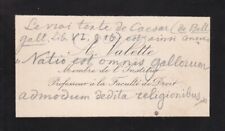 Le vrai texte de Caesar (de Bell
gall. Lib. VI, § 16) est ainsi
A. Valette
"Natio est omnis gallorum
Membre de l'Institut
Professeur à la Faculté de Droit
admodum dedita religionibus